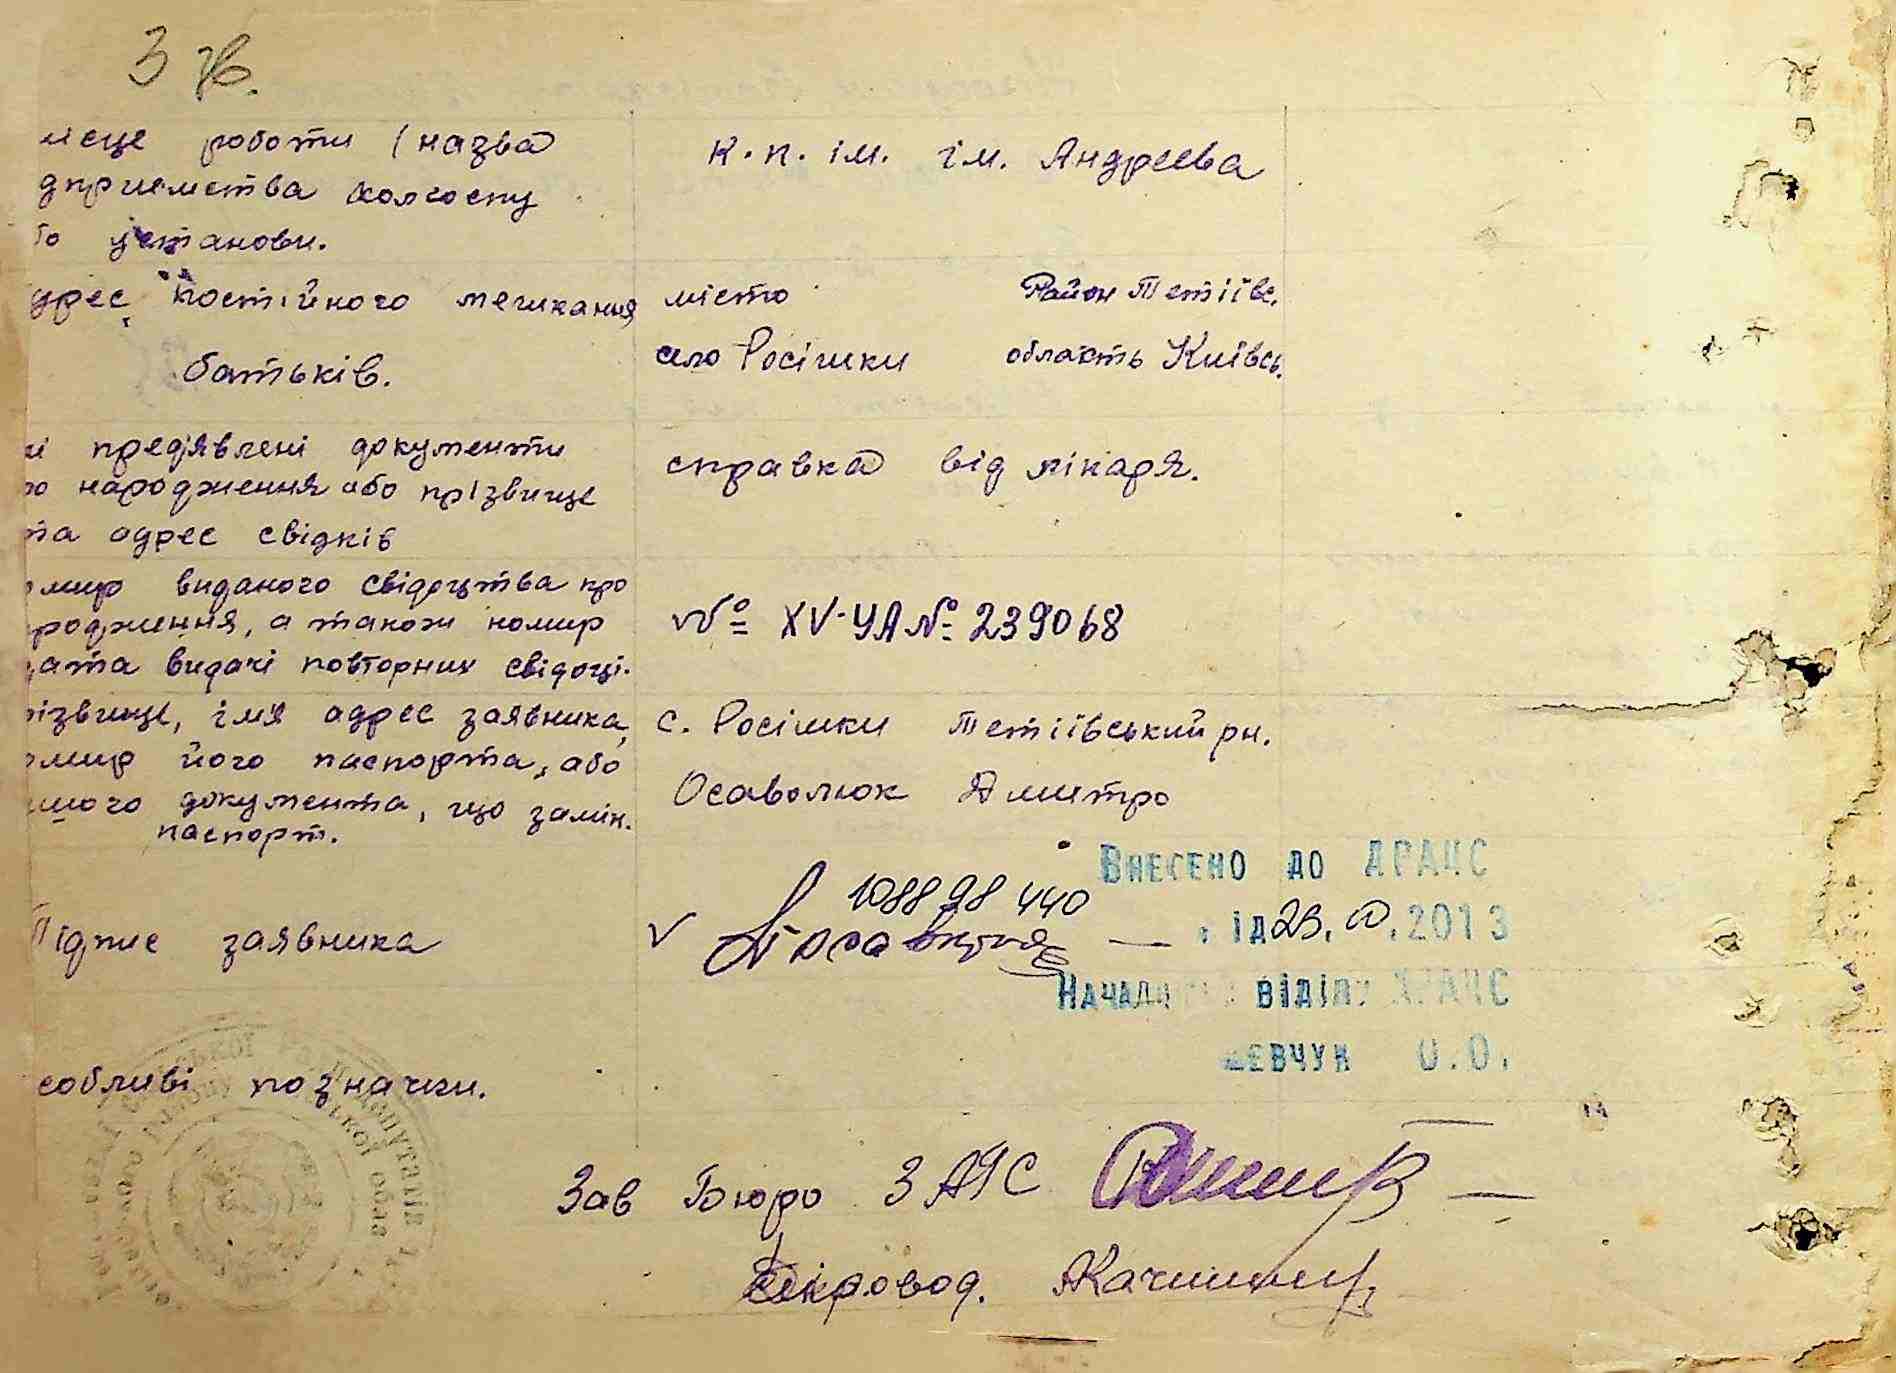 3
місце роботи (назва
дприємства колгоспу
бо установи.
к.п. ім. ім. Андрєєва
дрес постійного мешкання
батьків.
місто Район Тетіївс.
село Росішки область Київсь.
кі предʼявлені документи
ро народження або прізвище
та адрес свідків
справка від лікаря.
омир виданого свідоцтва про
родження, а також номир
дата видачі повторних свідоці.
№ XV-УА № 239068
різвище, імя адрес заявника,
омир його паспорта, або
ншого документа, що замін.
паспорт.
с. Росішки Тетіївський рн.
Осаволюк Дмитро
Підпис заявника
V
108898440
Внесено до ДРАЦС
від 23. .2013
Начальник відділу ДРАЦС
Шевчук О.О.
собливі позначки.
Зав Бюро ЗАГС
Секровод.